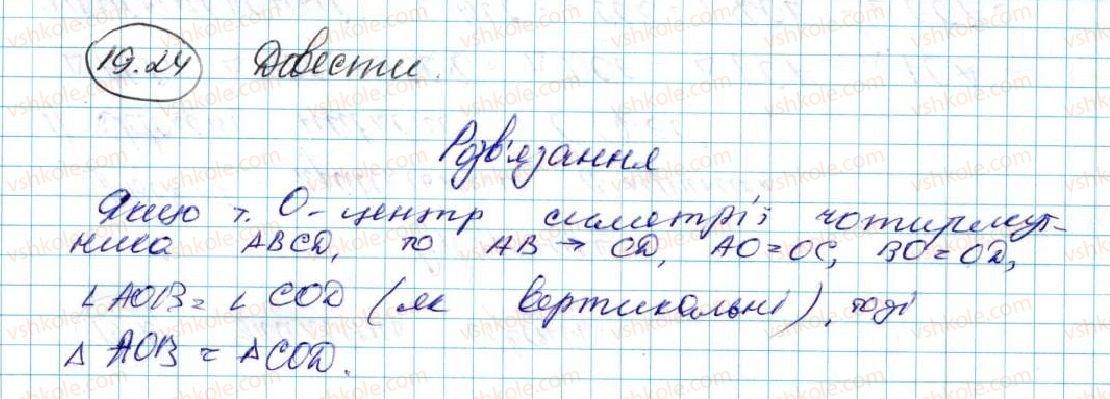 19.24 Довести
Розв'язання
Якщо т. О - центр симетрії чотирикут-
ника ABCD, то AB → CD, AO = OC, BO = OD,
∠ AOB = ∠ COD (як вертикальні), тоді
Δ AOB = Δ COD.